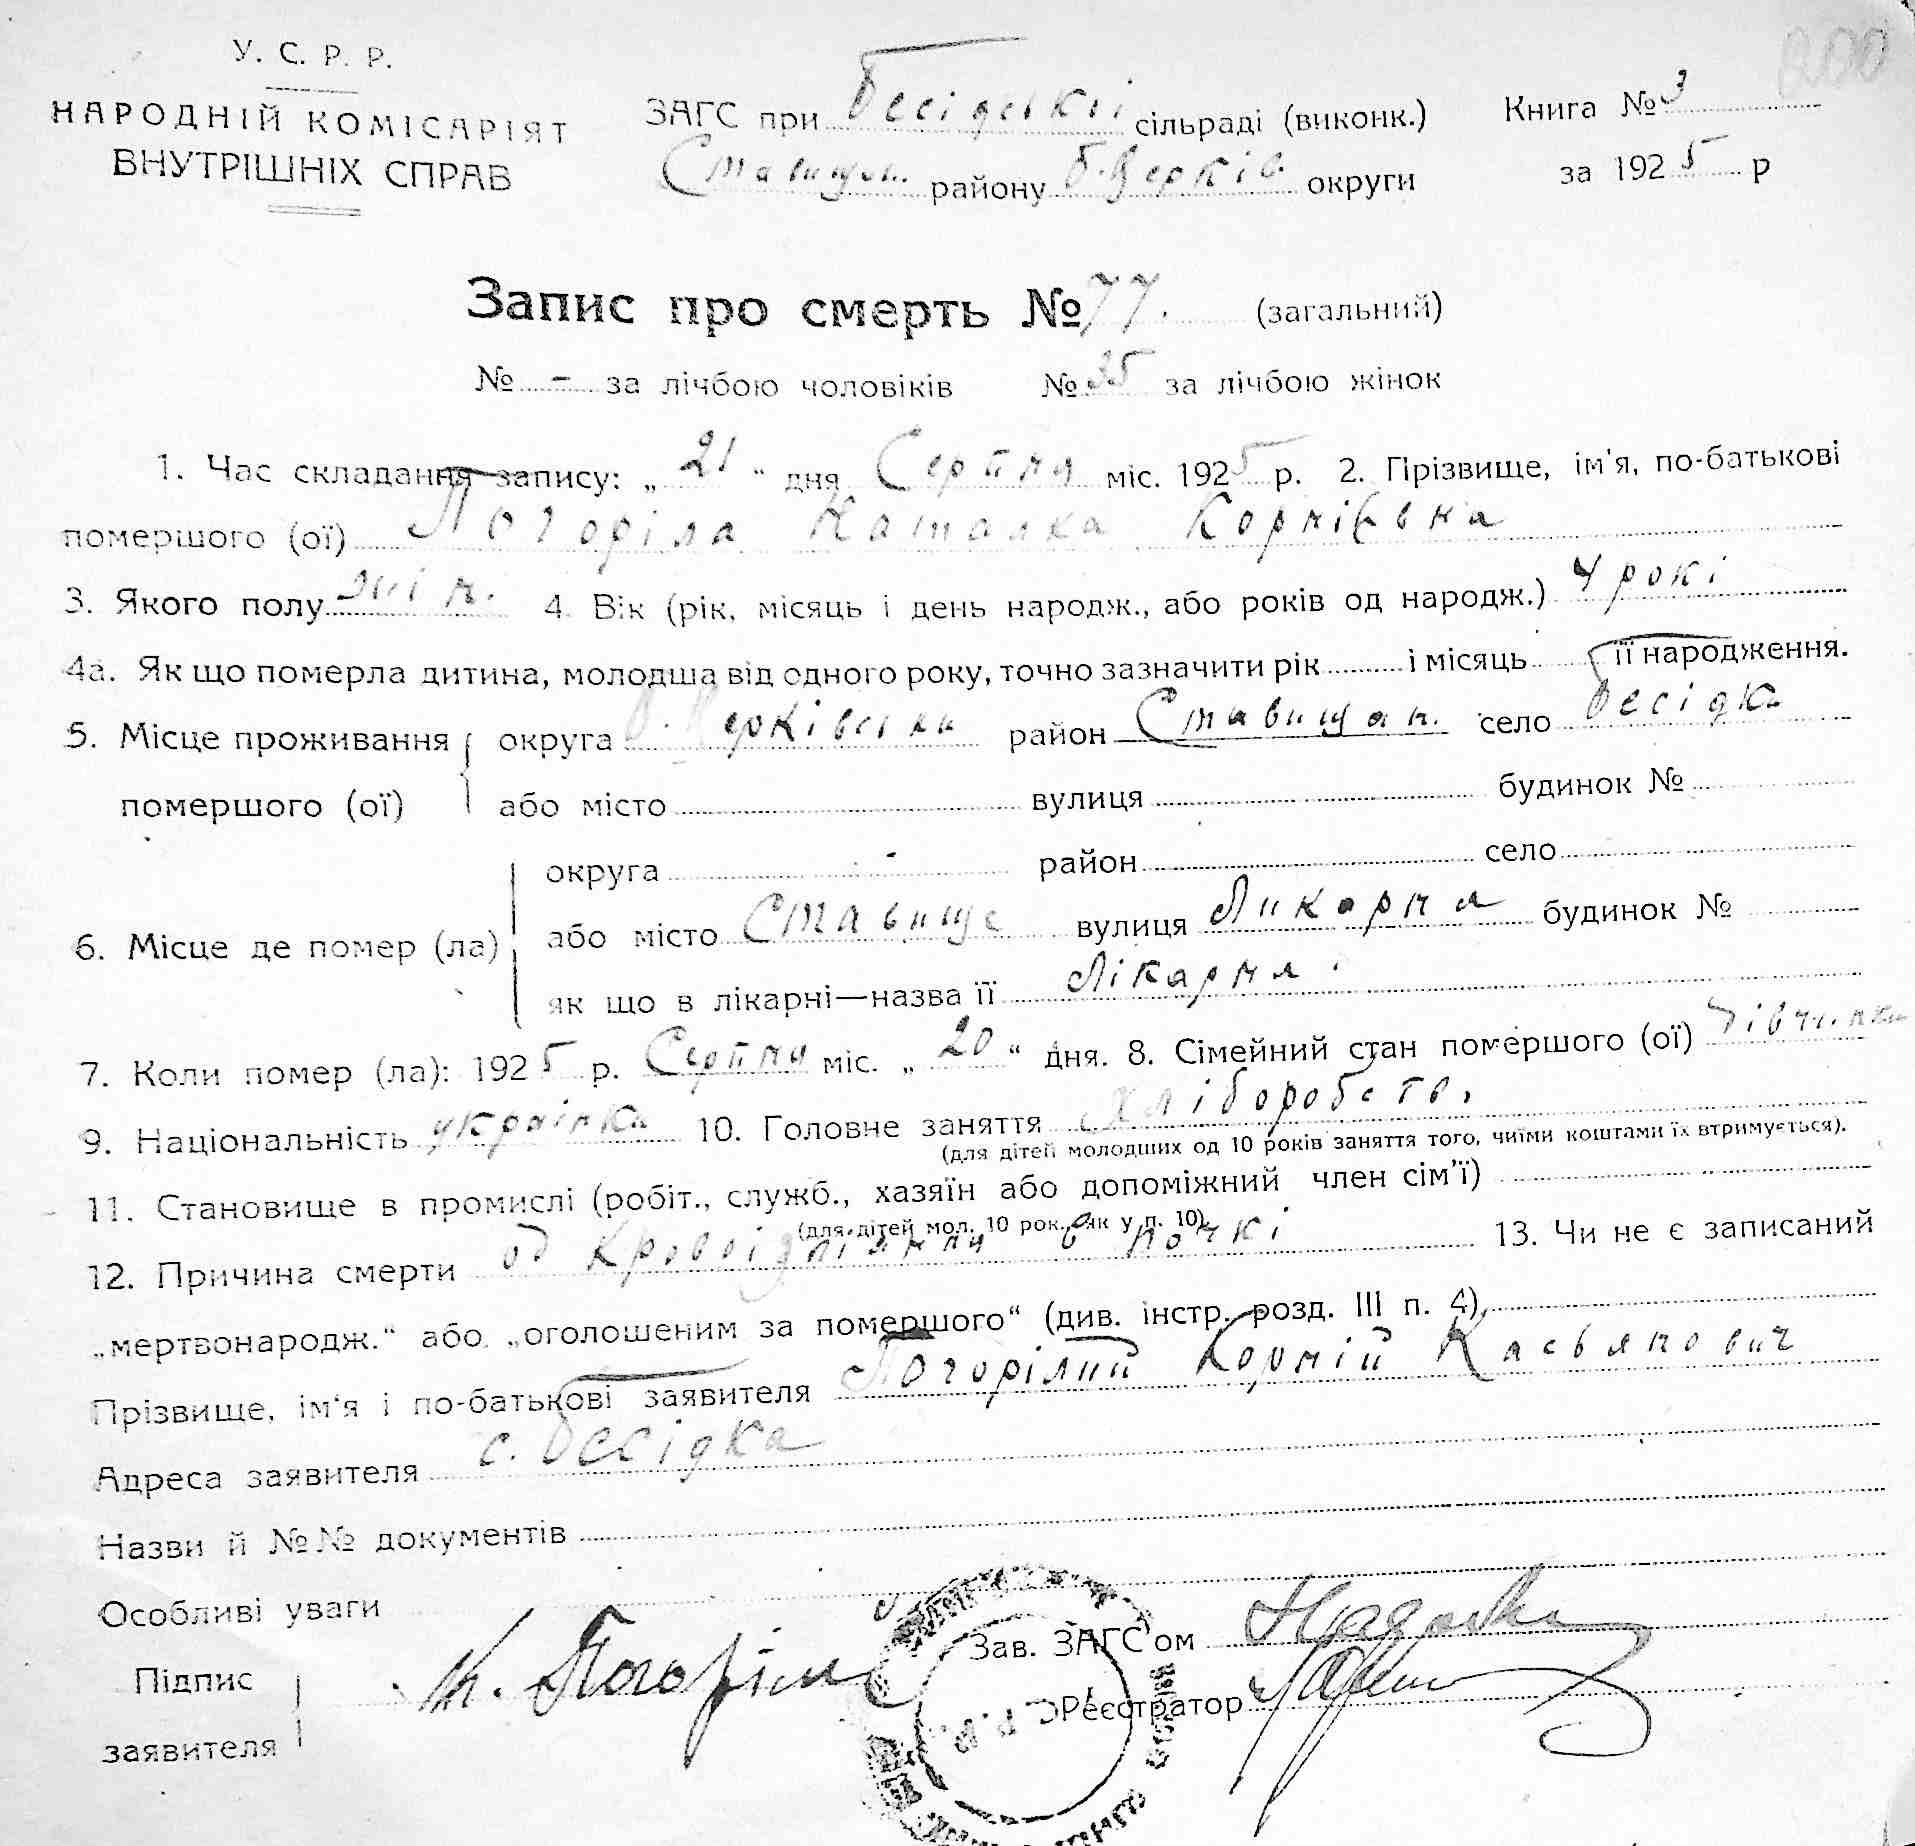 У. С. Р. Р.
НАРОДНІЙ КОМІСАРІЯТ
ВНУТРІШНІХ СПРАВ
ЗАГС при Бесідській сільраді (виконк.)
Ставищан. району Б. Церків. округи
Книга № 3
за 1925 р
Запис про смерть № 77. (загальний)
№ - за лічбою чоловіків № 35 за лічбою жінок
1. Час складання запису: „21“ дня Серпня міс. 1925 р. 2. Прізвище, ім'я, по-батькові
помершого (ої) Погоріла Наталка Корніївна
3. Якого полу жін. 4. Вік (рік, місяць і день народж., або років од народж.) 4 рокі
4а. Як що померла дитина, молодша від одного року, точно зазначити рік і місяць її народження.
5. Місце проживання помершого (ої) округа Б. Церківська район Ставищан. село Бесідка
або місто вулиця будинок №
6. Місце де помер (ла) округа - район село
або місто Ставище вулиця Ликарня будинок №
як що в лікарні—назва її Лікарня.
7. Коли помер (ла): 1925 р. Серпня міс. „20“ дня. 8. Сімейний стан помершого (ої) дівчинка
9. Національність українка 10. Головне заняття хліборобств.
(для дітей молодших од 10 років заняття того, чиїми коштами їх втримується).
11. Становище в промислі (робіт., служб., хазяїн або допоміжний член сім'ї)
(для дітей мол. 10 рок., як у п. 10)
12. Причина смерти од в почкі 13. Чи не є записаний
„мертвонародж.“ або „оголошеним за помершого“ (див. інстр. розд. III п. 4),
Прізвище, ім'я і по-батькові заявителя Погорілий Корній Касьянович
Адреса заявителя с. Бесідка
Назви й №№ документів
Особливі уваги
Підпис
заявителя
К. Погоріли
Зав. ЗАГС'ом
Реєстратор